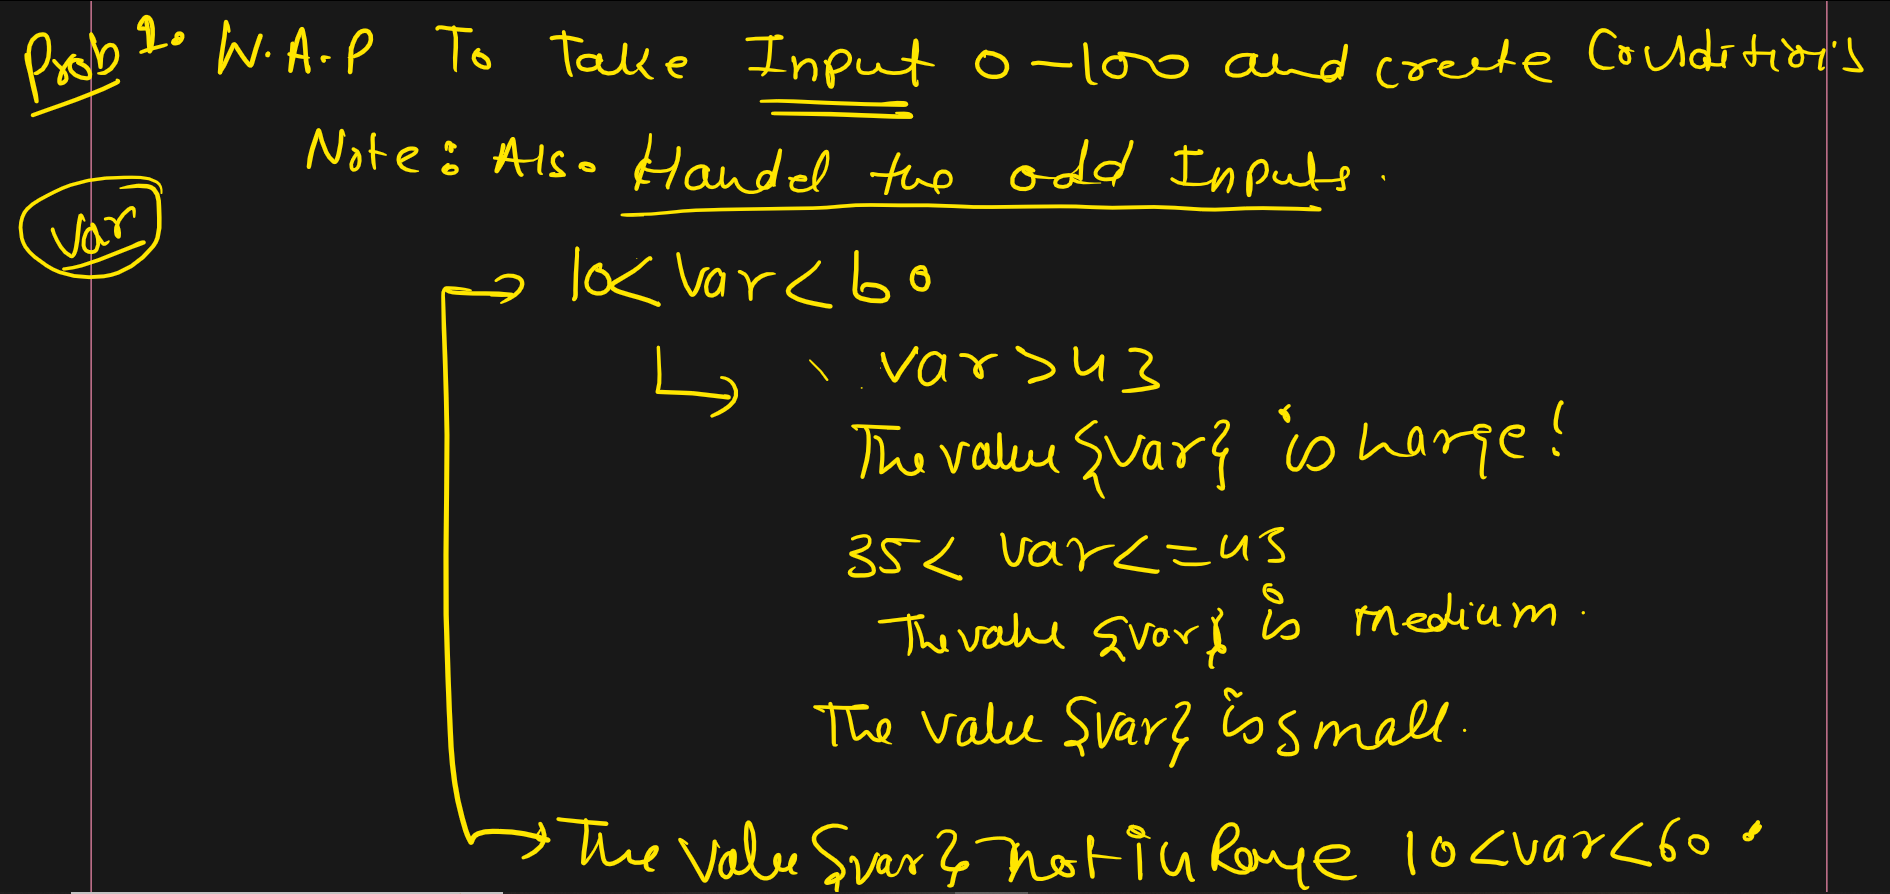 Prob 1. W.A.P To Take Input 0-100 and create Conditions
Note: Also Handel the odd Inputs.
var
10< var < 60
var > 43
The value {var} is Large!
35 < var <= 43
The value {var} is medium.
The value {var} is small.
The value {var} not in Range 10<var<60.